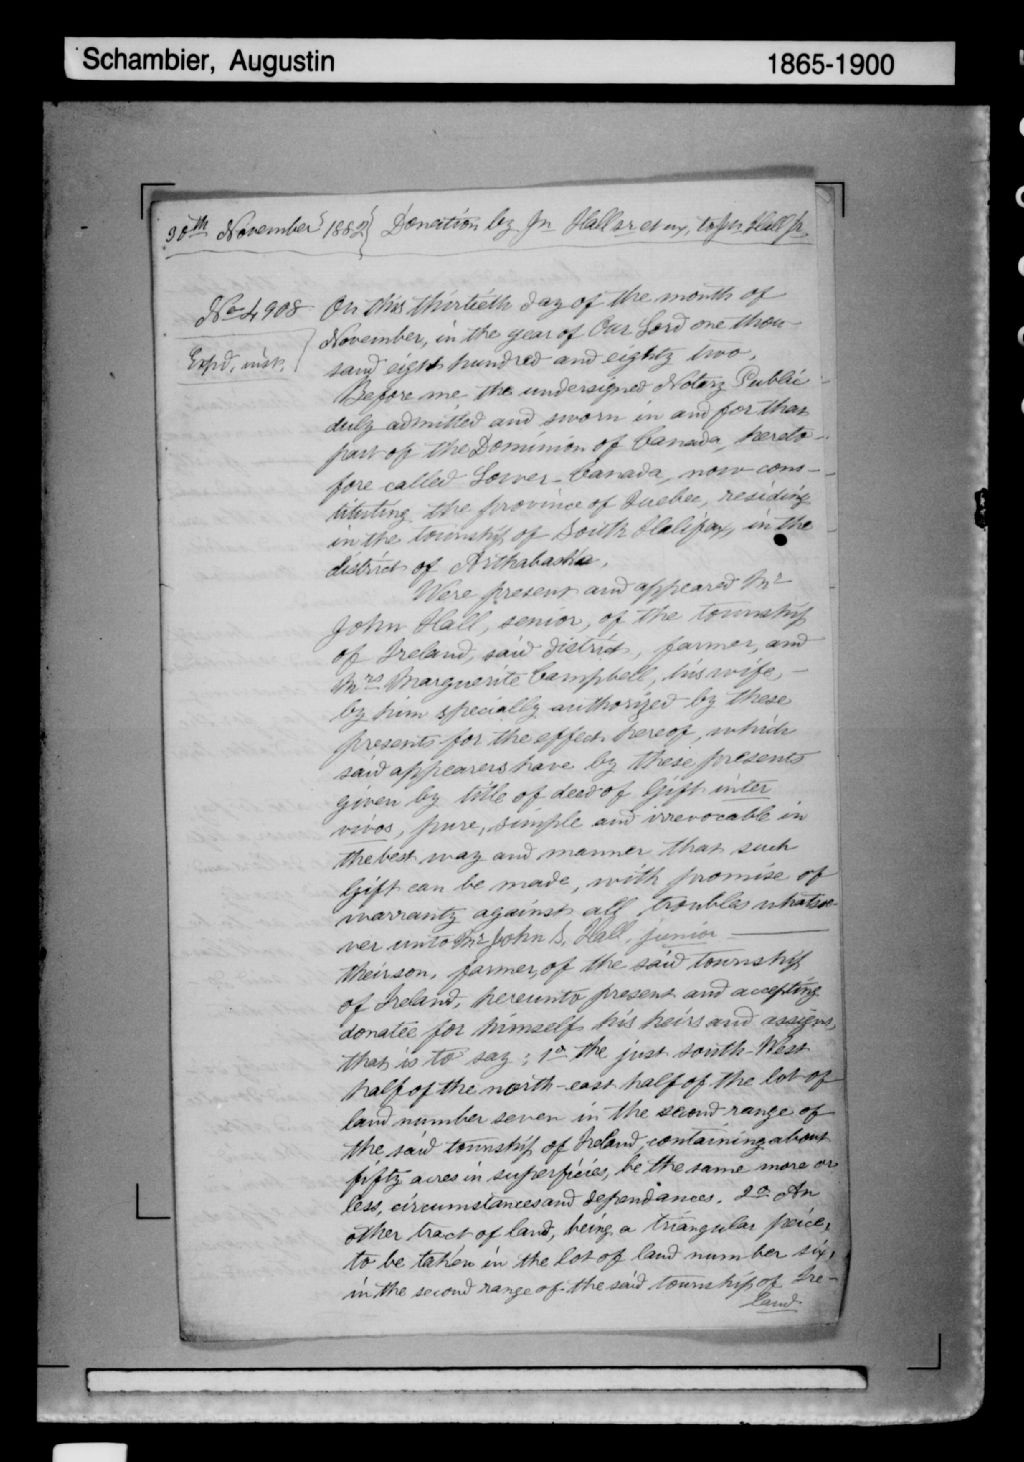 Schambier, Augustin 1865-1900
30th November 1882 } Donation by Jn Hall sr et ux, to Jn Hall jr.
No 4908
Exp'd, inst.
On this thirtieth day of the month of
November, in the year of Our Lord one thou-
sand eight hundred and eighty two,
Before me the undersigned Notary Public
duly admitted and sworn in and for that
part of the Dominion of Canada, hereto-
fore called Lower-Canada, now cons-
tituting the province of Quebec, residing
in the township of South Halifax, in the
district of Arthabaska,
Were present and appeared Mr
John Hall, senior, of the township
of Ireland, said district, farmer, and
Mrs Marguerite Campbell, his wife,
by him specially authorized by these
presents for the effect hereof, which
said appearers have by these presents
given by title of deed of Gift inter
vivos, pure, simple and irrevocable in
the best way and manner that such
Gift can be made, with promise of
warranty against all troubles whatsoe-
ver unto Mr John S. Hall, junior
their son, farmer, of the said township
of Ireland, hereunto present and accepting
donatee for himself his heirs and assigns,
that is to say: 1o the just south-West
half of the north-east half of the lot of
land number seven in the second range of
the said township of Ireland, containing about
fifty acres in superficies, be the same more or
less, circumstances and dependances. 2o An
other tract of land, being a triangular peice,
to be taken in the lot of land number six,
in the second range of the said township of Ire-
land